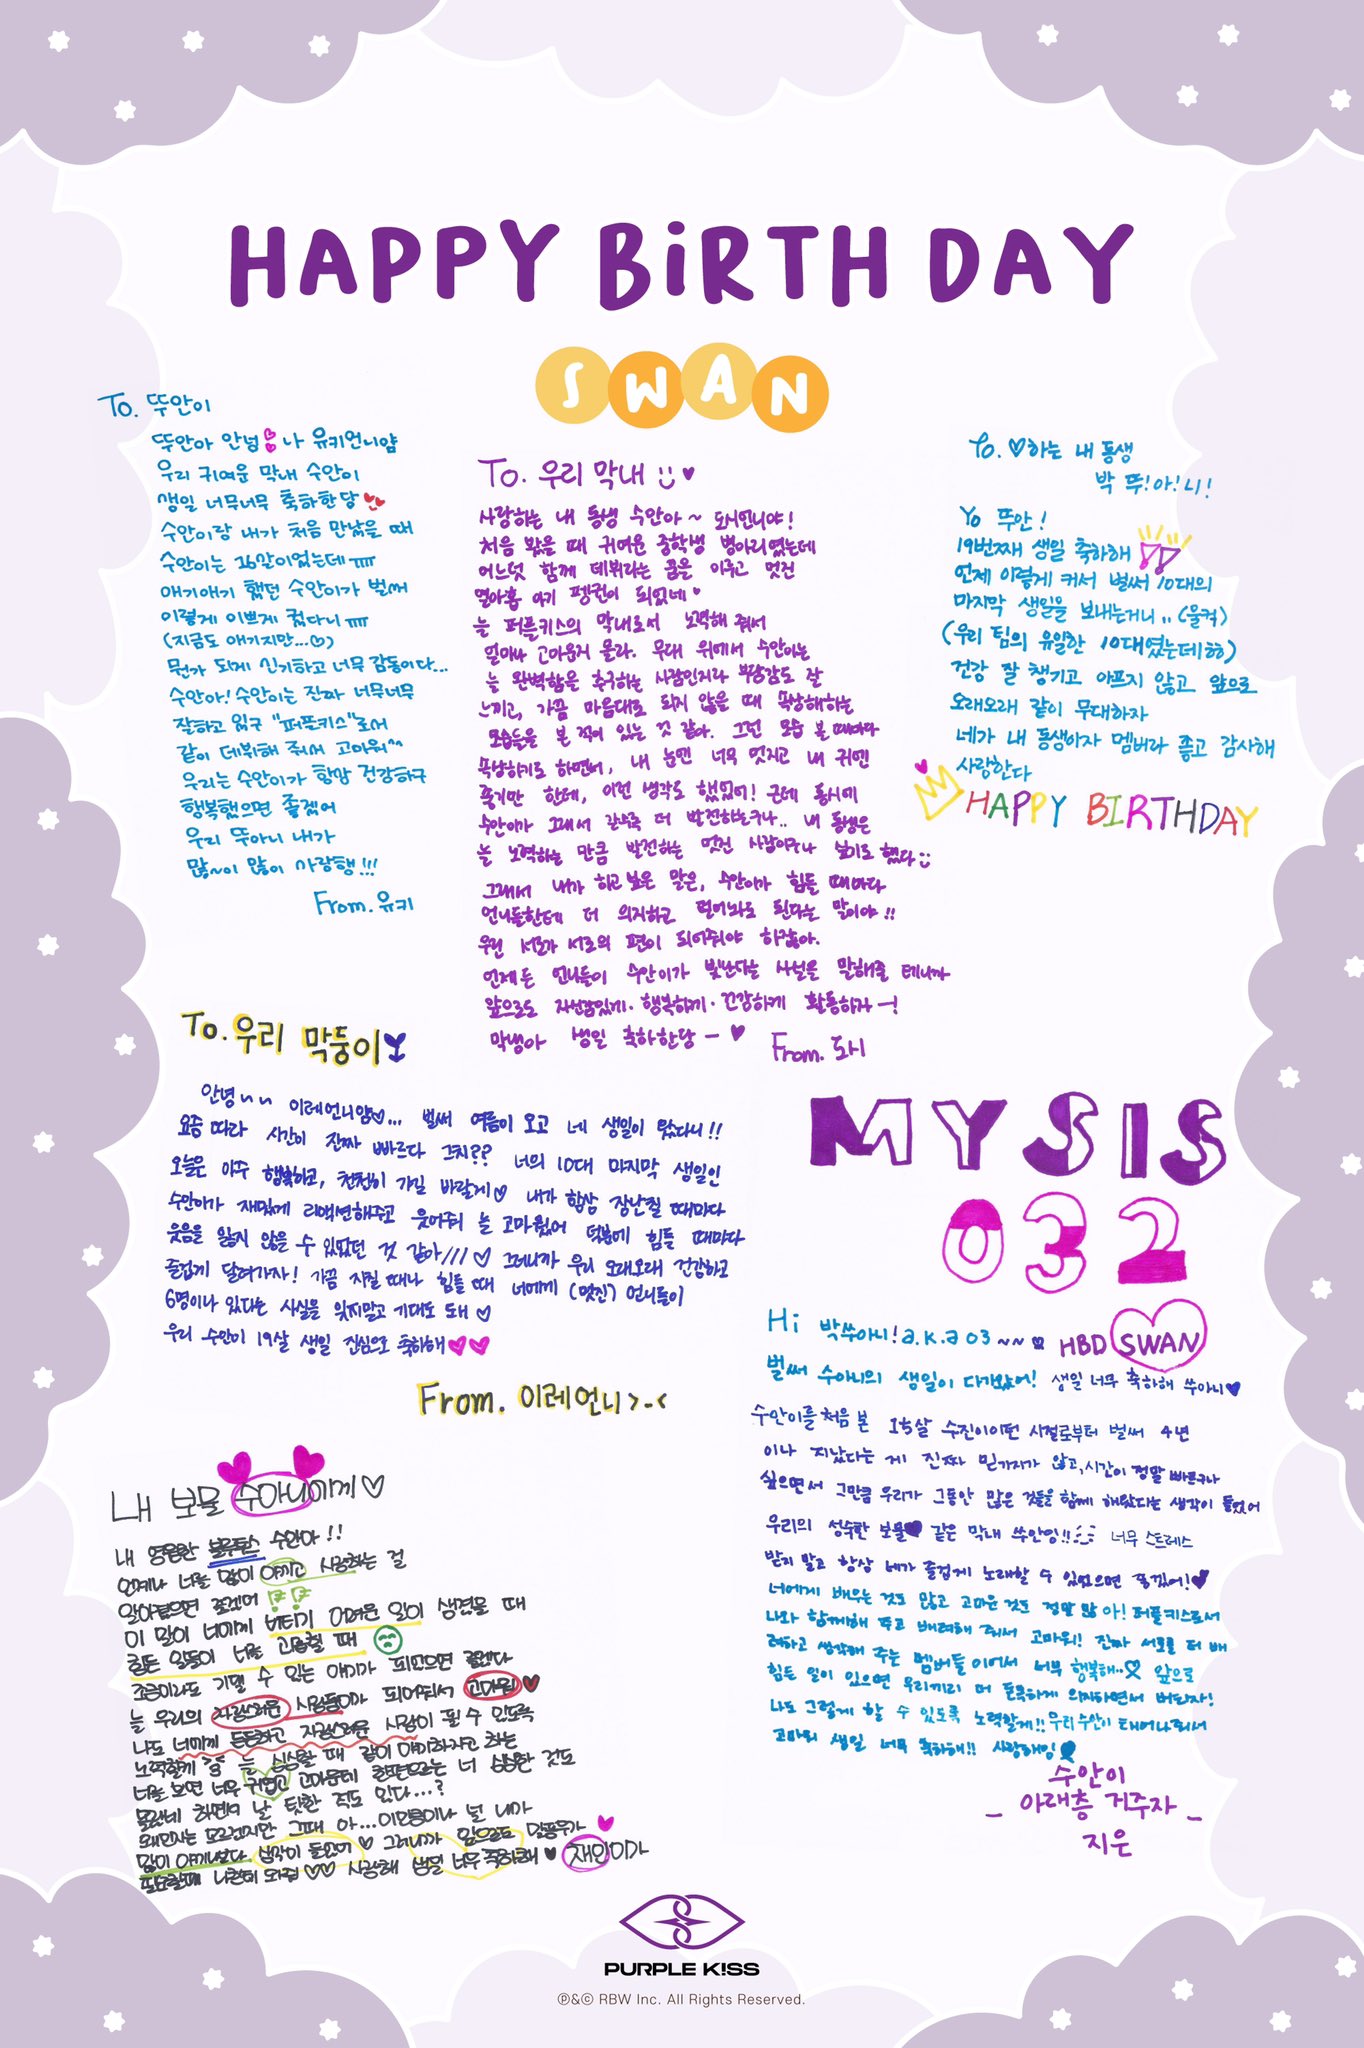 HAPPY BiRTH DAY
SWAN
To. 뚜안이
뚜안아 안녕 나 유키언니얌
우리 귀여운 막내 수안이
생일 너무너무 축하한당
수안이랑 내가 처음 만났을 때
수안이는 16살이었는데 ㅠㅠ
애기애기 했던 수안이가 벌써
이렇게 이쁘게 컸다니 ㅠㅠ
(지금도 애기지만...♡)
뭔가 되게 신기하고 너무 감동이다...
수안아! 수안이는 진짜 너무너무
잘하고 있구 "퍼플키스"로서
같이 데뷔해 줘서 고마워^^
우리는 수안이가 항상 건강하구
행복했으면 좋겠어
우리 뚜아니 내가
많~이 많이 사랑행!!!
From. 유키
To. 우리 막내 ♥
사랑하는 내 동생 수안아~ 도시언니야!
처음 봤을 때 귀여운 중학생 병아리였는데
어느덧 함께 데뷔라는 꿈을 이루고 멋진
열아홉 아기 펭귄이 되었네♥
늘 퍼플키스의 막내로서 노력해 줘서
얼마나 고마운지 몰라. 무대 위에서 수안이는
늘 완벽함을 추구하는 사람인지라 부담감도 잘
느끼고, 가끔 마음대로 되지 않을 때 속상해하는
모습들을 본 적이 있는 것 같아. 그런 모습 볼 때마다
속상하기도 하면서, 내 눈엔 너무 멋지고 내 귀엔
좋기만 한데, 이런 생각도 했었어! 근데 동시에
수안이가 그래서 갈수록 더 발전하는구나.. 내 동생은
늘 노력하는 만큼 발전하는 멋진 사람이구나 싶기도 했다
그래서 내가 하고 싶은 말은, 수안이가 힘들 때마다
언니들한테 더 의지하고 털어놔도 된다는 말이야!!
우린 서로가 서로의 편이 되어줘야 하잖아.
언제든 언니들이 수안이가 빛난다는 사실을 말해줄 테니까
앞으로도 자신감있게·행복하게·건강하게 활동하자-!
막냉아 생일 축하한당 - ♥
From. 도시
To. ♡하는 내 동생
박 뚜!아!니!
Yo 뚜안!
19번째 생일 축하해
언제 이렇게 커서 벌써 10대의
마지막 생일을 보내는거니.. (울컥)
(우리 팀의 유일한 10대였는데!ㅎㅎ)
건강 잘 챙기고 아프지 않고 앞으로
오래오래 같이 무대하자
네가 내 동생이자 멤버라 좋고 감사해
사랑한다
HAPPY BIRTHDAY
To. 우리 막둥이
안녕~~ 이레언니얌♡... 벌써 여름이 오고 네 생일이 왔다니!!
요즘 따라 시간이 진짜 빠르다 그치?? 너의 10대 마지막 생일인
오늘은 아주 행복하고, 천천히 가길 바랄게♡ 내가 항상 장난칠 때마다
수안이가 재밌게 리액션해주고 웃어줘 늘 고마웠어 덕분에 힘들 때마다
웃음을 잃지 않을 수 있었던 것 같아/// ♡ 그러니까 우리 오래오래 건강하고
즐겁게 달려가자! 가끔 지칠 때나 힘들 때 너에게 (멋진) 언니들이
6명이나 있다는 사실을 잊지말고 기대도 돼 ♡
우리 수안이 19살 생일 진심으로 축하해 ♥♥
From. 이레언니 >-<
MY SIS
032
Hi 박쑤아니! a.k.a 03 ~~ HBD SWAN
벌써 수아니의 생일이 다가왔어! 생일 너무 축하해 쑤아니♥
수안이를 처음 본 15살 수진이이던 시절로부터 벌써 4년
이나 지났다는 게 진짜 믿기지가 않고, 시간이 정말 빠르구나
싶으면서 그만큼 우리가 그동안 많은 것들을 함께 해왔다는 생각이 들었어
우리의 성숙한 보물♥ 같은 막내 쑤안잉!! 너무 스트레스
받지 말고 항상 네가 즐겁게 노래할 수 있었으면 좋겠어!♥
너에게 배우는 것도 많고 고마운 것도 정말 많아! 퍼플키스로서
나와 함께해 주고 배려해 줘서 고마워! 진짜 서로를 더 배
려하고 생각해 주는 멤버들 이어서 너무 행복해..♡ 앞으로
힘든 일이 있으면 우리끼리 더 돈독하게 의지하면서 버티자!
나도 그렇게 할 수 있도록 노력할게!! 우리 수안이 태어나줘서
고마워 생일 너무 축하해!! 사랑해잉
수안이
_ 아래층 거주자 _
지은
내 보물 수아니에게♡
내 영원한 수안아!!
언제나 너를 많이 아끼고 사랑하는 걸
알아줬으면 좋겠어
이 말이 너에게 버티기 어려운 일이 생겼을 때
힘든 일들이 너를 고롭힐 때
조금이라도 기댈 수 있는 얘기가 되었으면 좋겠다
늘 우리의 자랑스러운 사람들이가 되어줘서 고마워 ♥
나도 너에게 든든하고 자랑스러운 사람이 될 수 있도록
노력할게 늘 심심할 때 같이 얘기하자고 하는
너를 보면 너무 귀엽고 고마운데 한편으로는 너 심심한 것도
몰랐네 하면서 날 탓한 적도 있다...?
왜인지는 모르겠지만 그때 아...이만큼이나 널 내가
많이 아끼나보다 생각이 들었어 ♡ 그러니까 앞으로도 말동무가
필요할때 나한테 와줘 ♡♡ 사랑해 생일 너무 축하해 ♥ 재인이가
PURPLE K!SS
℗&© RBW Inc. All Rights Reserved.